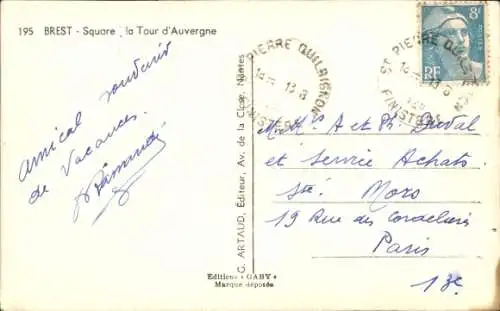 195 BREST - Square la Tour d'Auvergne
Amical souvenir
de Vacances.
G. ARTAUD, Éditeur, Av. de la Close, Nantes
Editions "GABY"
Marque déposée
ST PIERRE QUILBIGNON
FINISTERE
8F
RF
ST PIERRE QUILBIGNON
FINISTERE
et Ph. Duval
et Service Achats
Sté. Mors
19 Rue des Cordelières
Paris
13e